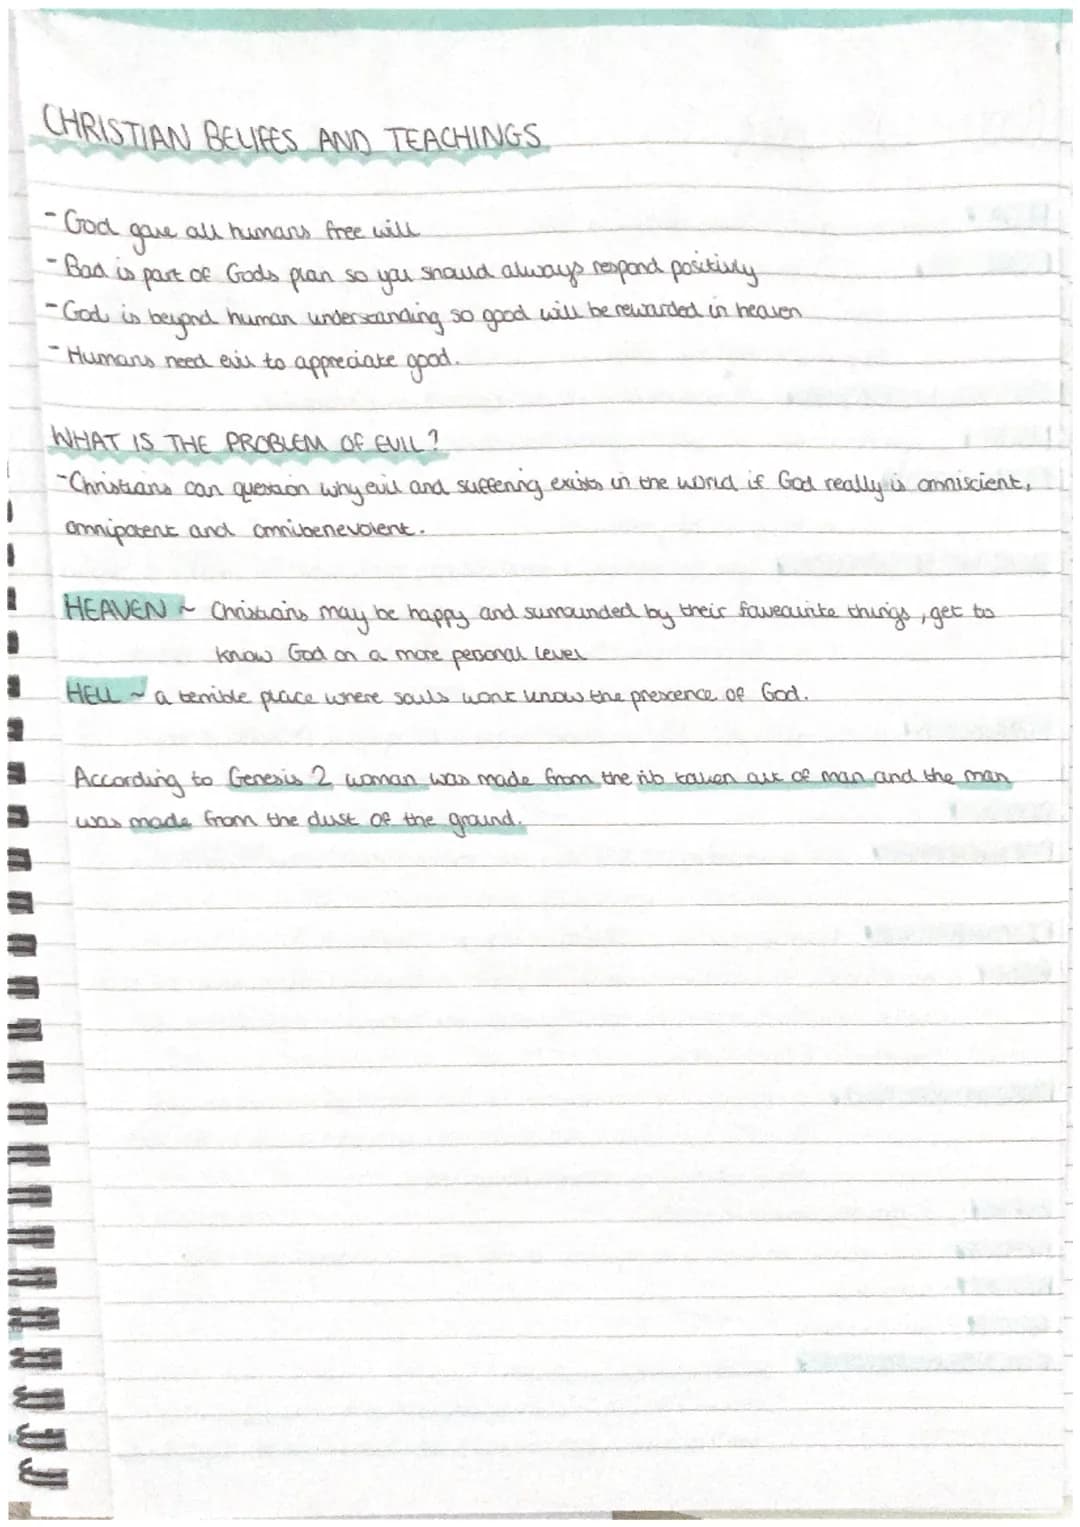 CHRISTIAN BELIFES AND TEACHINGS
- God gave all humans free will
- Bad is part of Gods plan so you should always respond positivly
- God is beyond human understanding so good will be rewarded in heaven
- Humans need evil to appreciate good.
WHAT IS THE PROBLEM OF EVIL?
- Christians can question why evil and suffering exists in the world if God really is omniscient,
omnipotent and omnibenevolent.
HEAVEN ~ Christians may be happy and surrounded by their faveourite things, get to
know God on a more personal level
HELL ~ a terrible place where souls wont know the prescence of God.
According to Genesis 2 woman was made from the rib taken out of man and the man
was made from the dust of the ground.